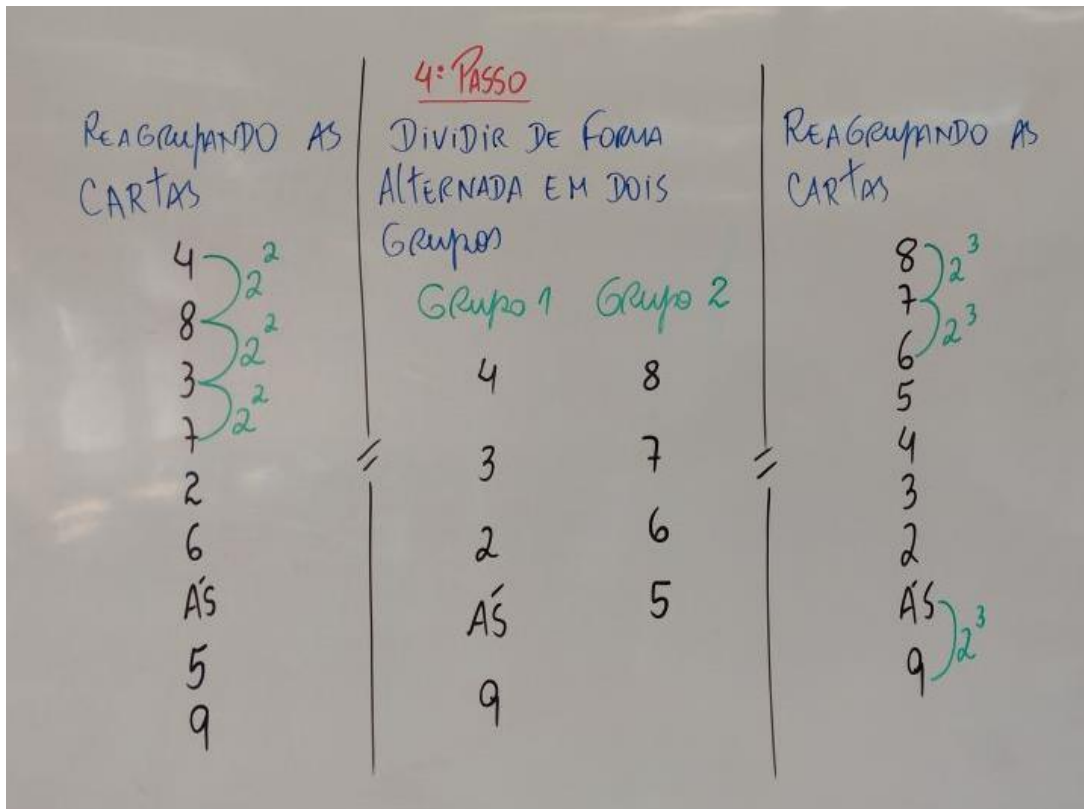 REAGRUPANDO AS
CARTAS
4
8
3
7
2
6
ÁS
5
9
2²
2²
2²
4º PASSO
DIVIDIR DE FORMA
ALTERNADA EM DOIS
GRUPOS
GRUPO 1 GRUPO 2
4 8
3 7
2 6
ÁS 5
9
REAGRUPANDO AS
CARTAS
8
7
6
5
4
3
2
ÁS
9
2³
2³
2³